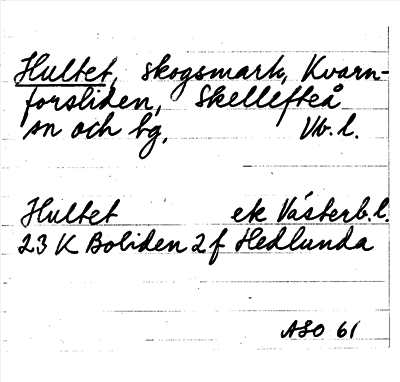 Hultet, skogsmark, Kvarn-
forsliden, Skellefteå
sn och bg, Vb. l.
Hultet ek Västerb. l.
23 K Boliden 2 f Hedlunda
ASO 61